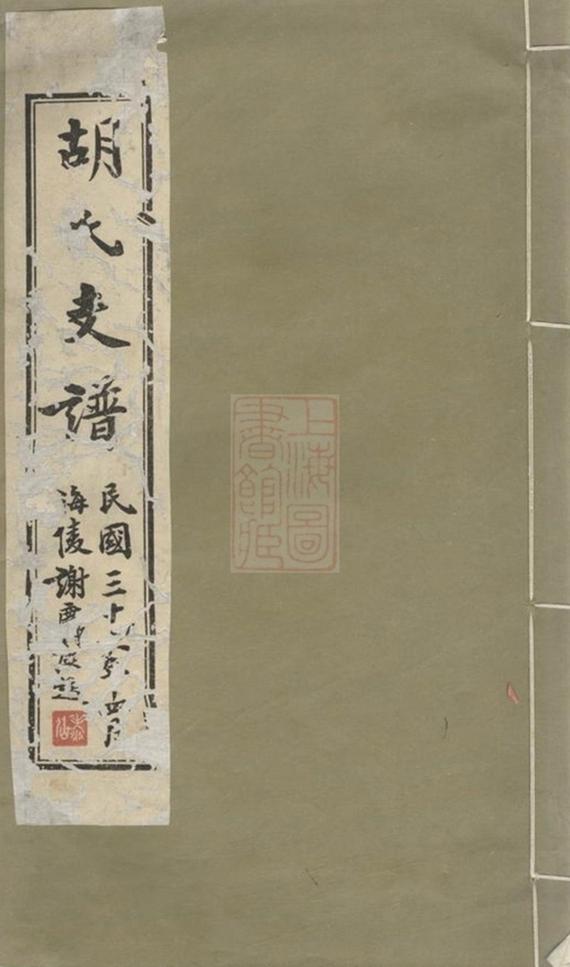 胡氏支譜
民國三十年月
海陵謝題
上海圖
書館